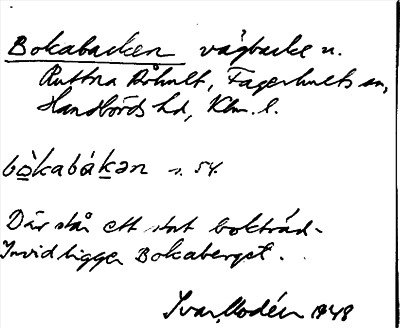 Bokabacken vägbacke n.
Ruttna Röhult, Fagerhults sn,
Handbörds hd, Klm. l.
bòkabákən s. 54.
Där står ett stort bokträd.
Invid ligger Bokaberget.
Ivar Modéer 1948